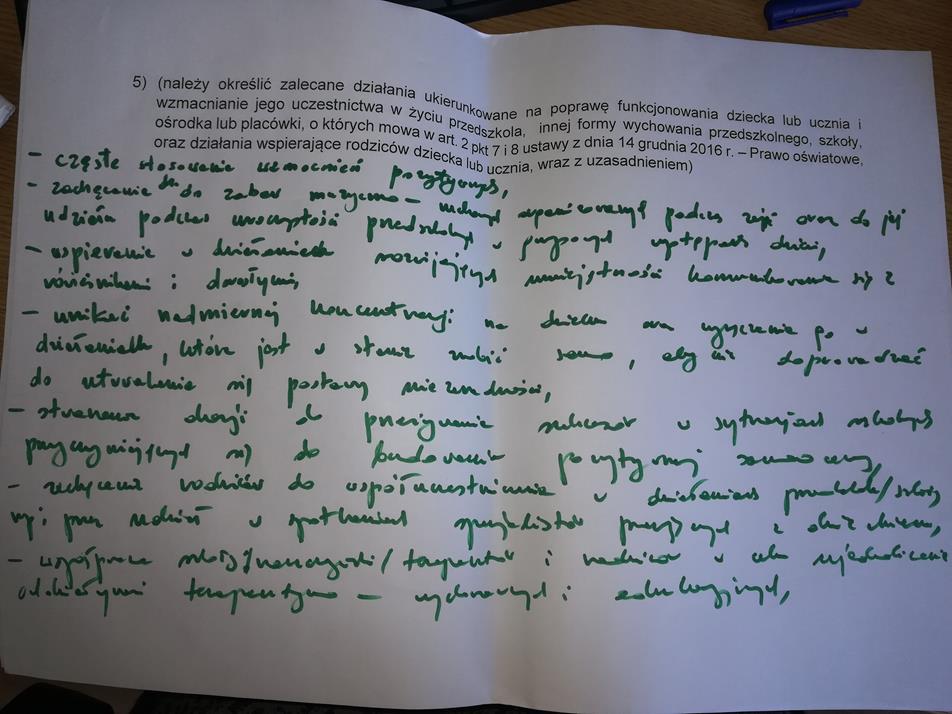 5) (należy określić zalecane działania ukierunkowane na poprawę funkcjonowania dziecka lub ucznia i
wzmacnianie jego uczestnictwa w życiu przedszkola, innej formy wychowania przedszkolnego, szkoły,
ośrodka lub placówki, o których mowa w art. 2 pkt 7 i 8 ustawy z dnia 14 grudnia 2016 r. – Prawo oświatowe,
oraz działania wspierające rodziców dziecka lub ucznia, wraz z uzasadnieniem)
- częste stosowanie wzmocnień pozytywnych,
- zachęcanie do zabaw muzyczno - ruchowych organizowanych podczas zajęć oraz do jej
udziału podczas uroczystości przedszkolnych w występach dzieci,
- wspieranie w działaniach rozwijających umiejętność komunikowania się z
rówieśnikami i dorosłymi,
- unikać nadmiernej koncentracji na dziecku oraz wyręczania go w
działaniach, które jest w stanie zrobić samo, aby nie doprowadzać
do utrwalenia się postawy niezaradności,
- stwarzanie okazji do przeżywania sukcesów w sytuacjach szkolnych
przyczyniających się do budowania pozytywnej samooceny,
- zachęcanie rodziców do współuczestniczenia w działaniach przedszkola/szkoły
przez udział w spotkaniach specjalistów pracujących z dzieckiem,
- współpraca szkoły/nauczycieli/terapeutów i rodziców w celu ujednolicenia
oddziaływań terapeutyczno - wychowawczych i edukacyjnych,